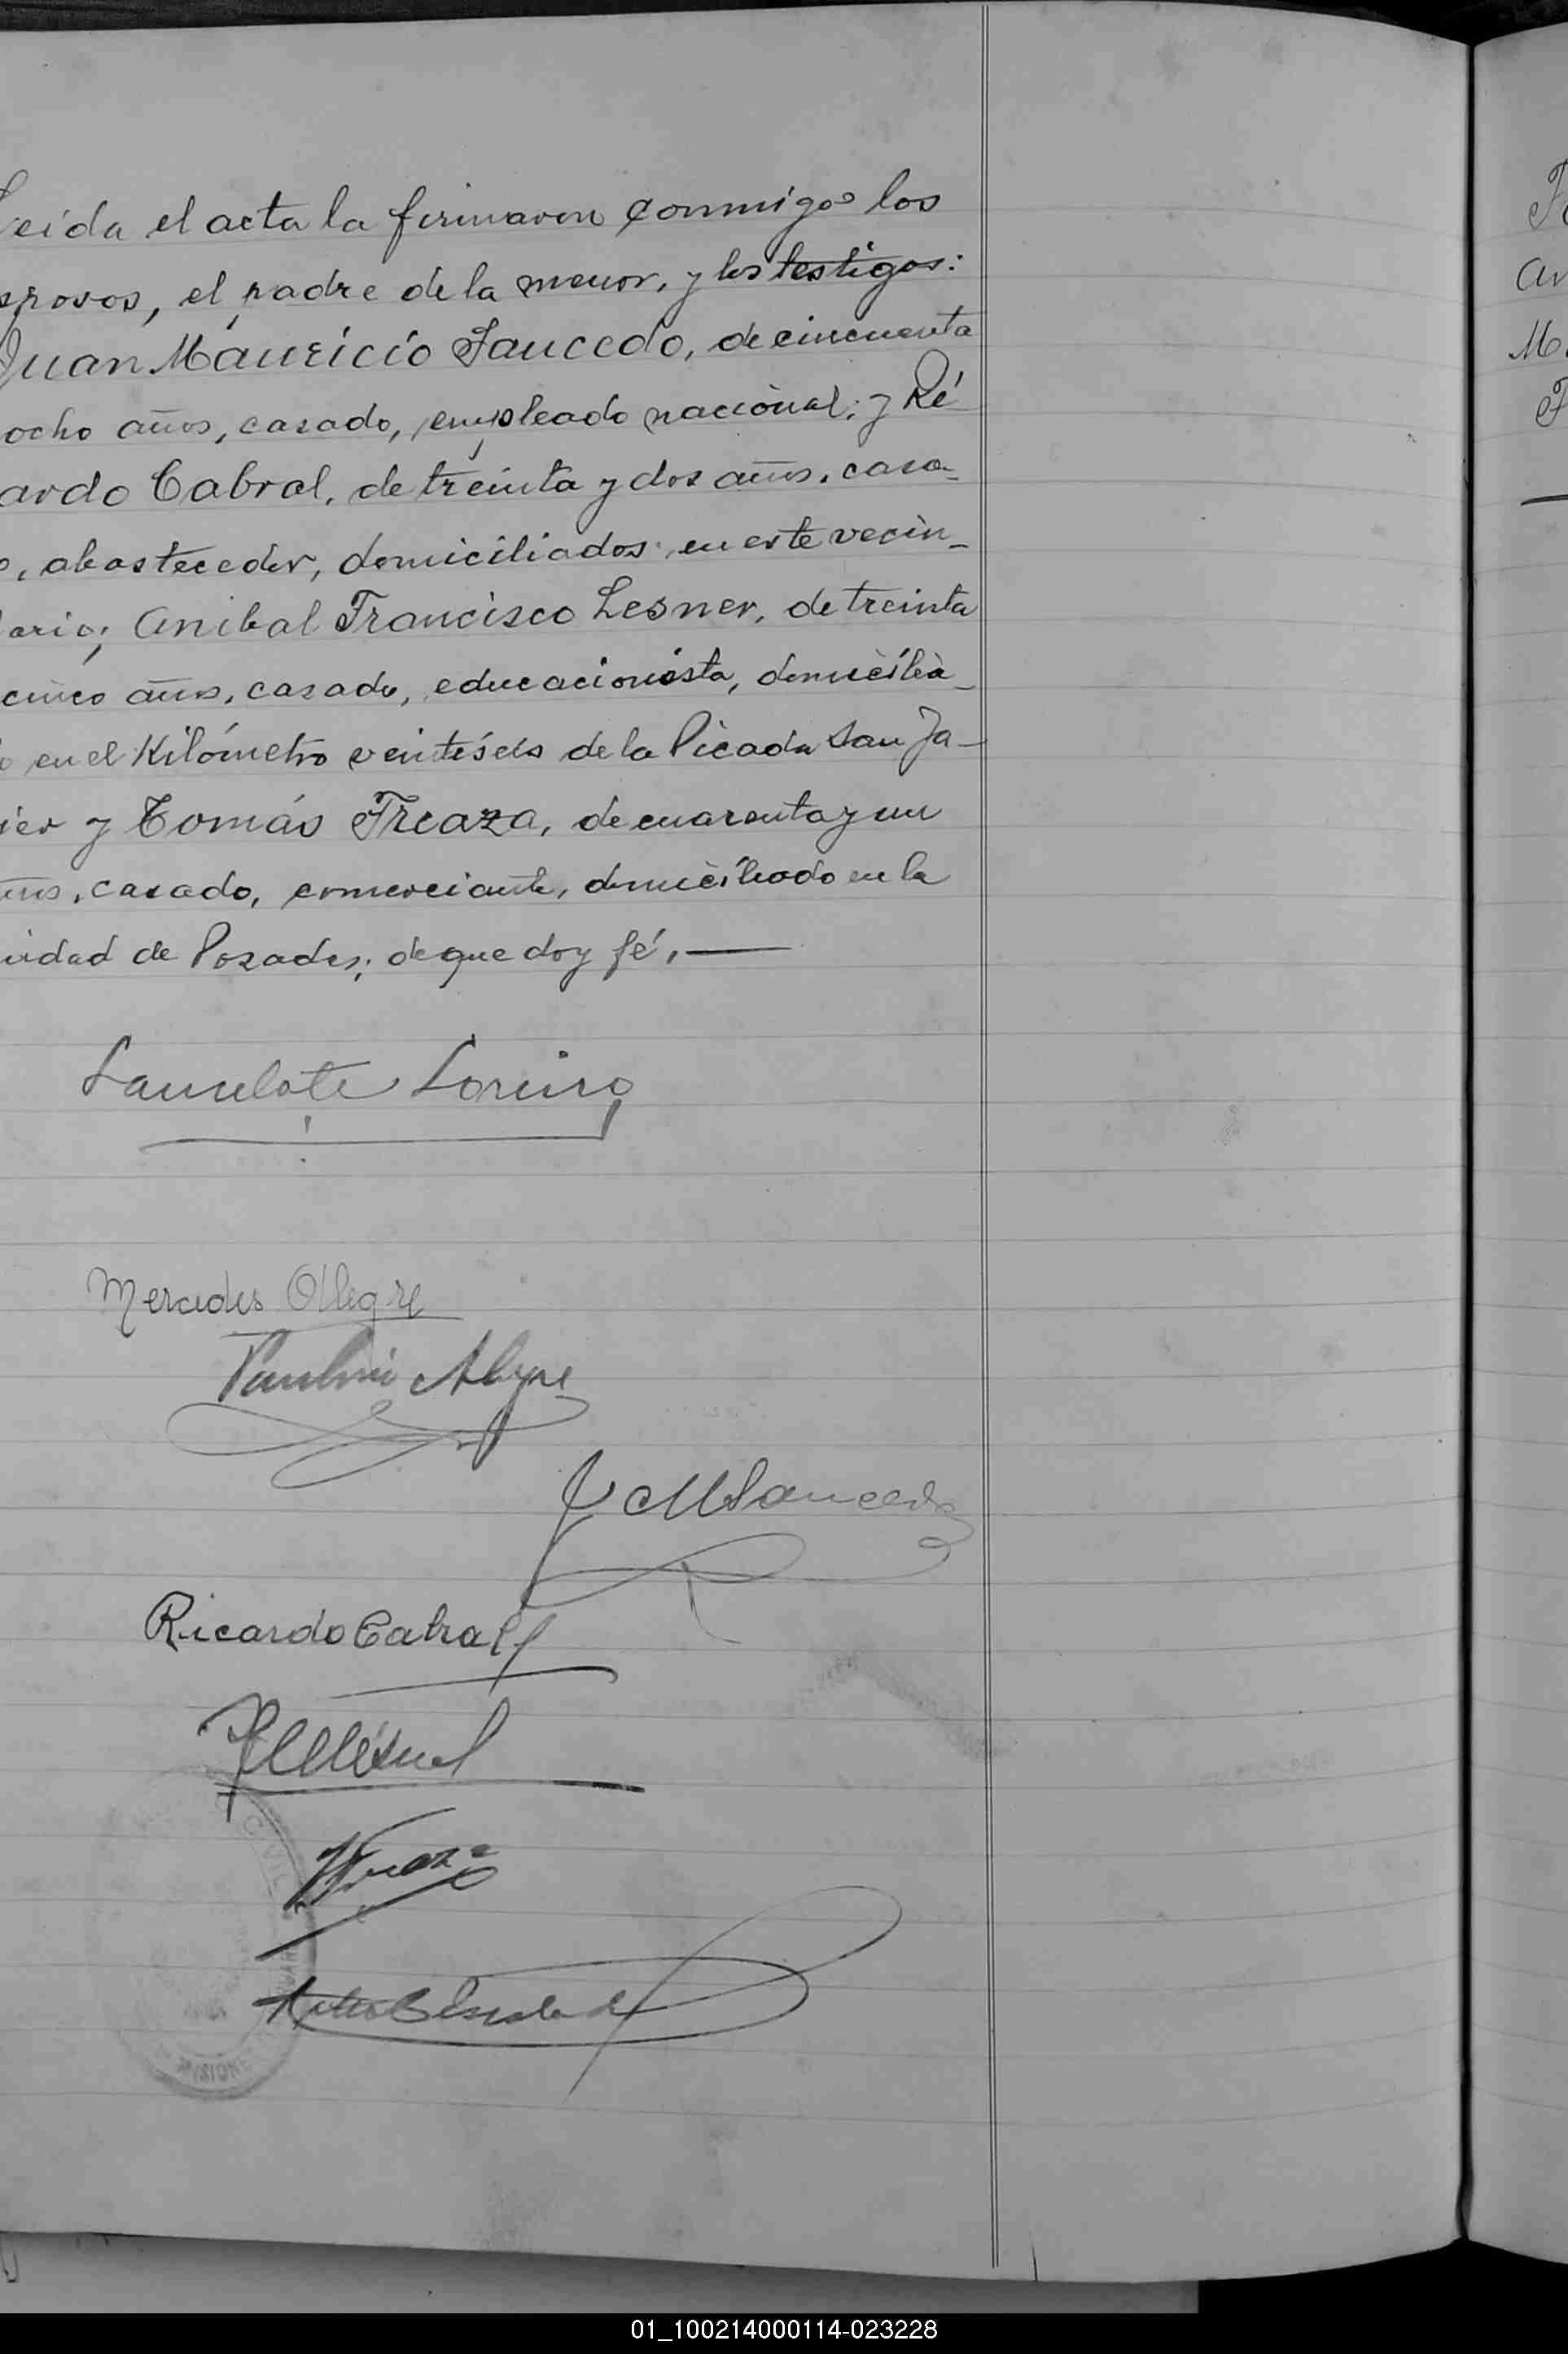 Leida el acta la firmaron conmigo los
esposos, el padre de la menor, y los testigos:
Juan Mauricio Saucedo, de cincuenta
ocho años, casado, empleado nacional; y Ri-
cardo Cabral, de treinta y dos años, casa-
o, abastecedor, domiciliados en este vecin-
dario; Anibal Francisco Lesner, de treinta
cinco años, casado, educacionista, domicilia-
o en el Kilómetro veintiséis de la Picada San Ja-
vier y Tomás Freaza, de cuarenta y un
años, casado, comerciante, domiciliado en la
ciudad de Posadas; de que doy fé,
Lancelote Loreiro
Mercedes Allegre
Alegre
J M Saucedo
Ricardo Cabral
CIVIL
MISIONES
01_100214000114-023228